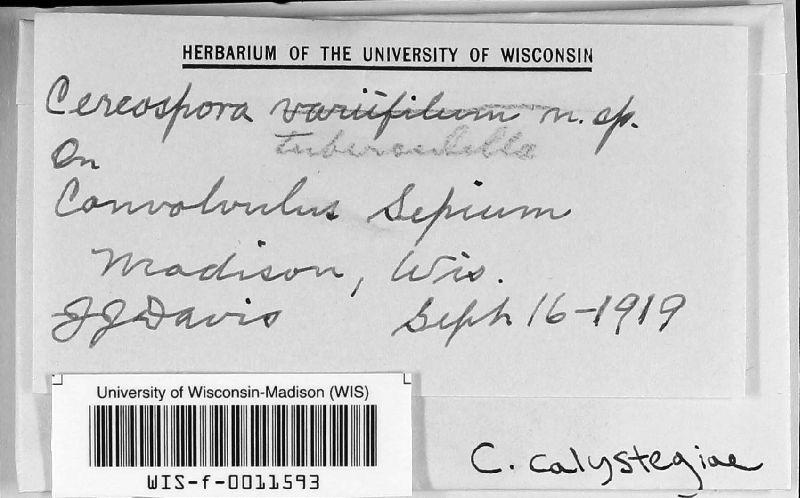 HERBARIUM OF THE UNIVERSITY OF WISCONSIN
Cercospora variifilum n. sp.
tuberculella
On
Convolvulus Sepium
Madison, Wis.
JJDavis Sept 16-1919
University of Wisconsin-Madison (WIS)
WIS-f-0011593
C. calystegiae